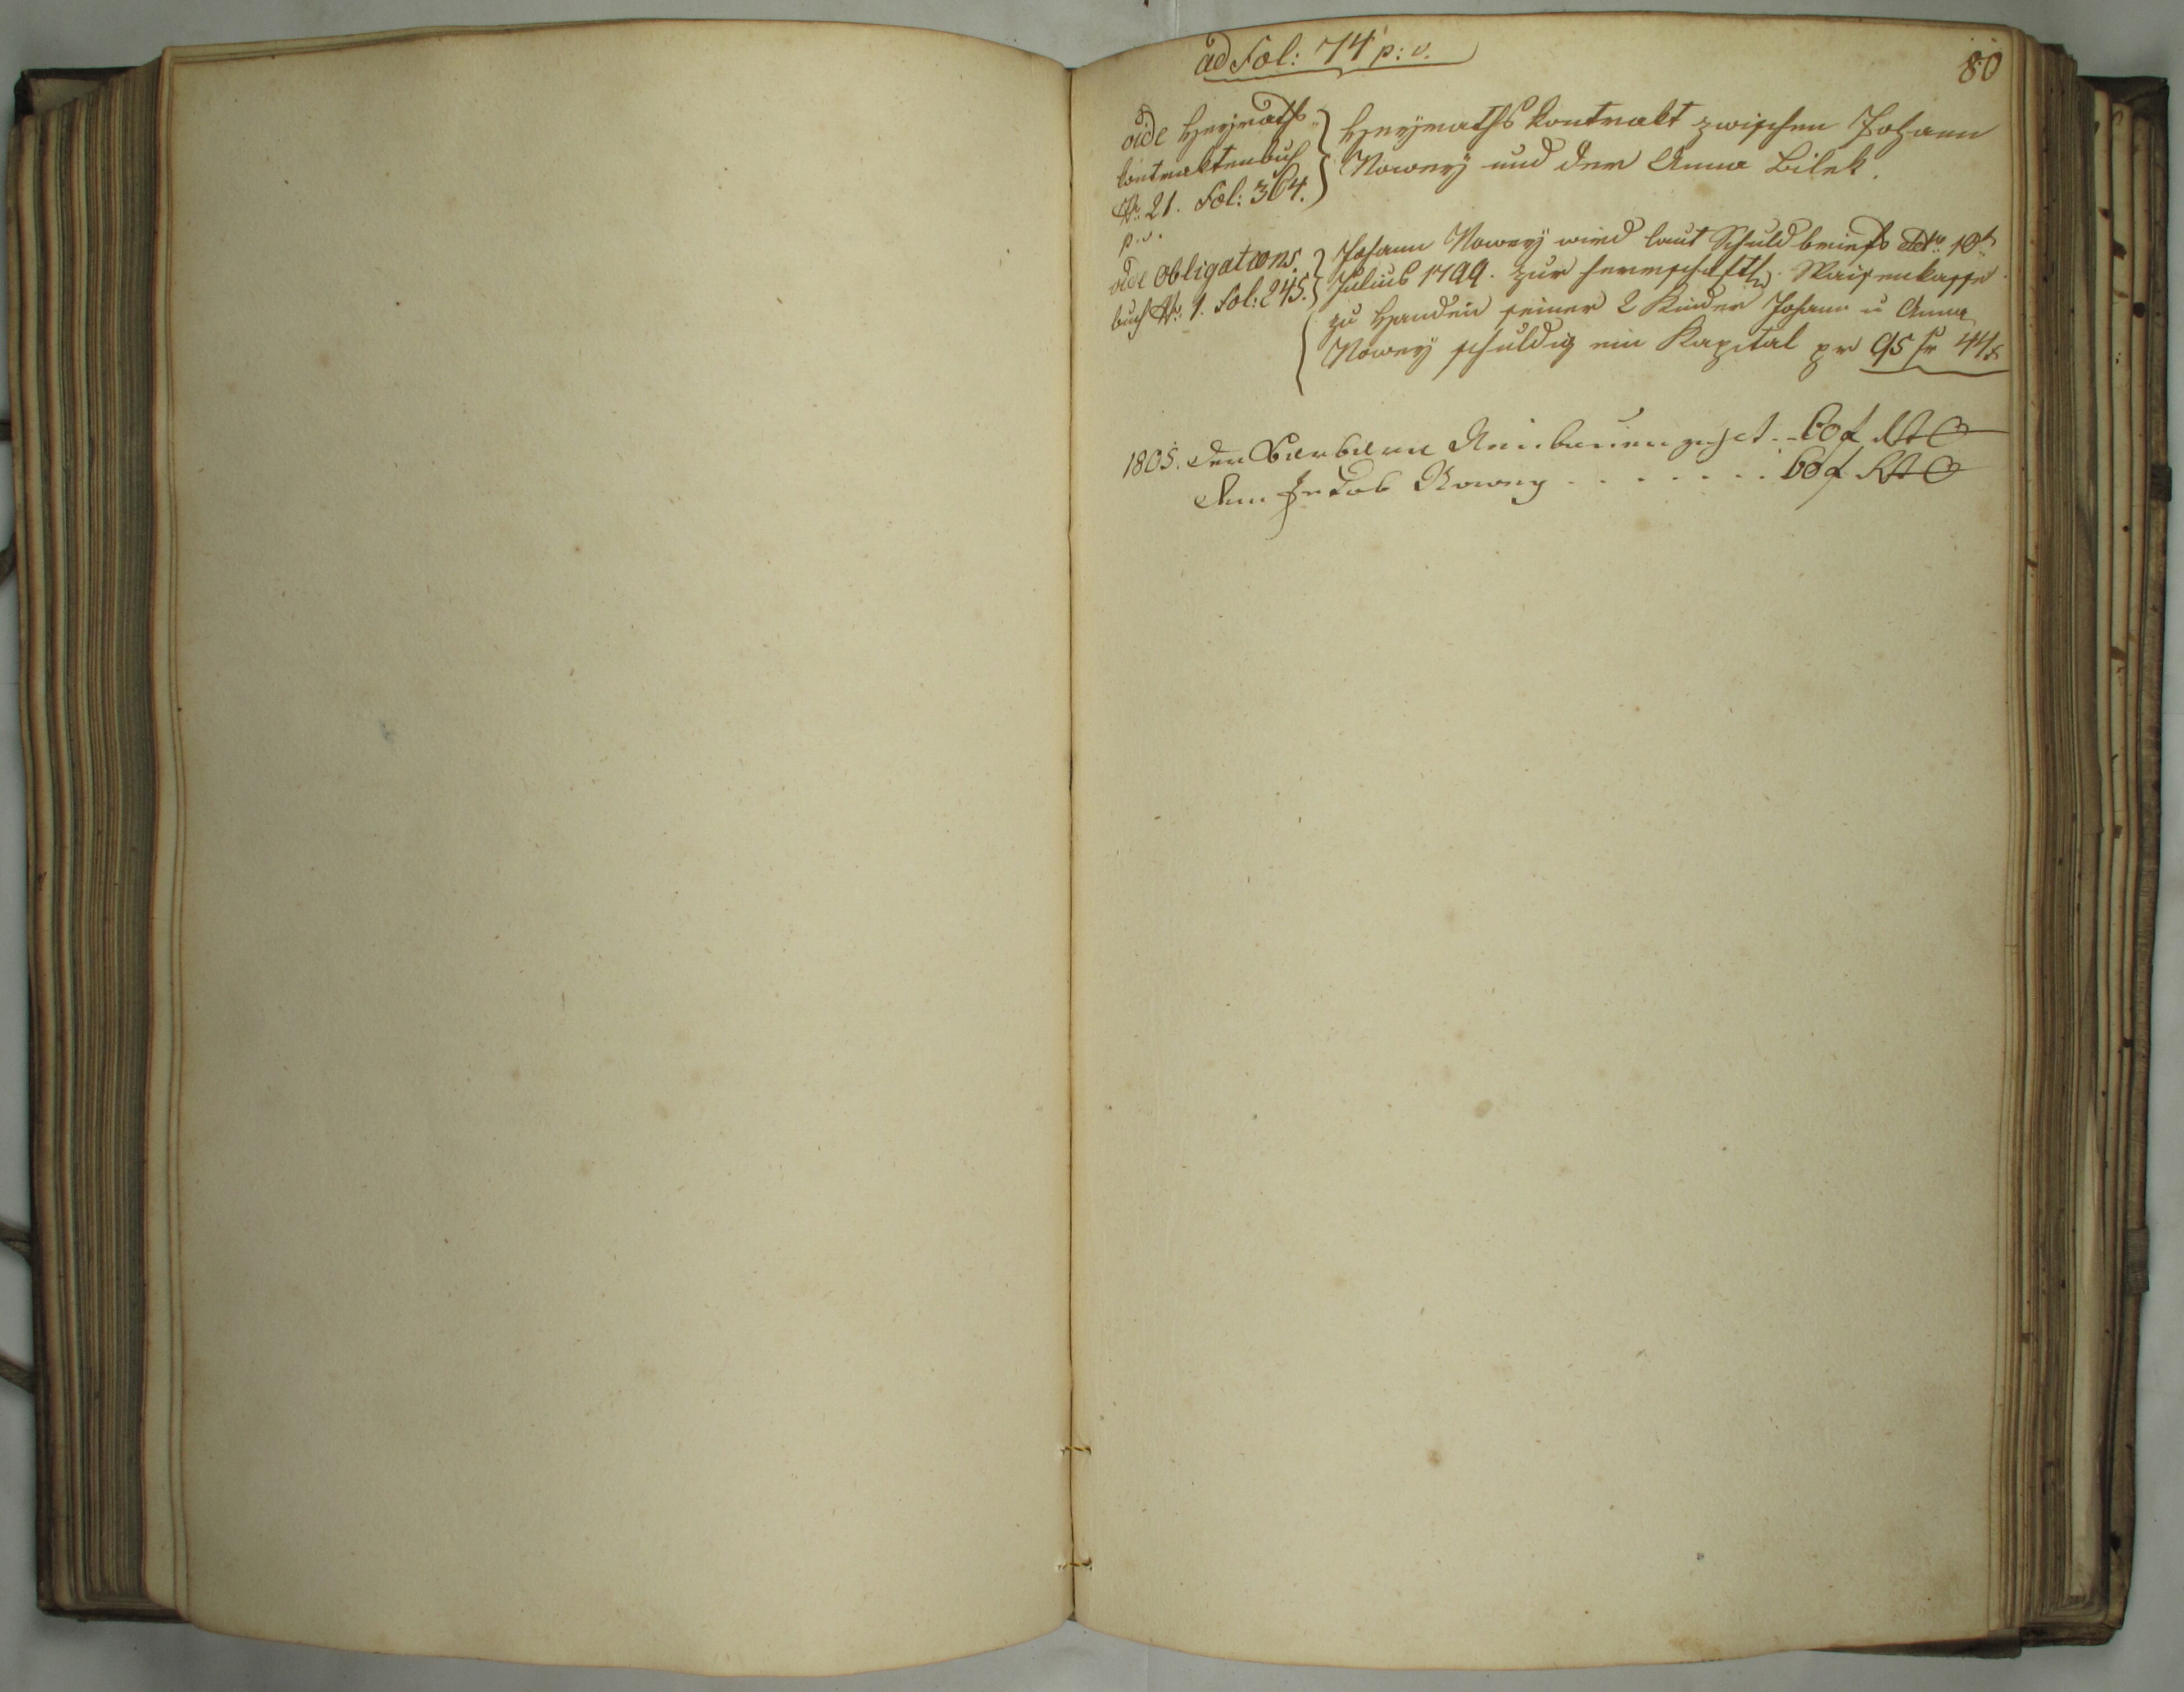 ad Fol: 74 p: v.
80
vide Heyraths
kontraktenbuch
Nr: 21. Fol: 364.
p. v.
Heyraths Kontrakt zwischen Johann
Nowey und der Anna Bilek.
vide Obligations
buch Nr: 1. Fol: 245.
Johann Nowey wird laut Schuldbriefs ddto 10t
Julius 1799. zur herrschaftl. Waisenkasse
zu Handen seiner 2 Kinder Johann u Anna
Nowey schuldig ein Kapital pr 95 fr 44 x
1805. Der Barbara
Dem Jakob Nowey . . . . . . . 60 f